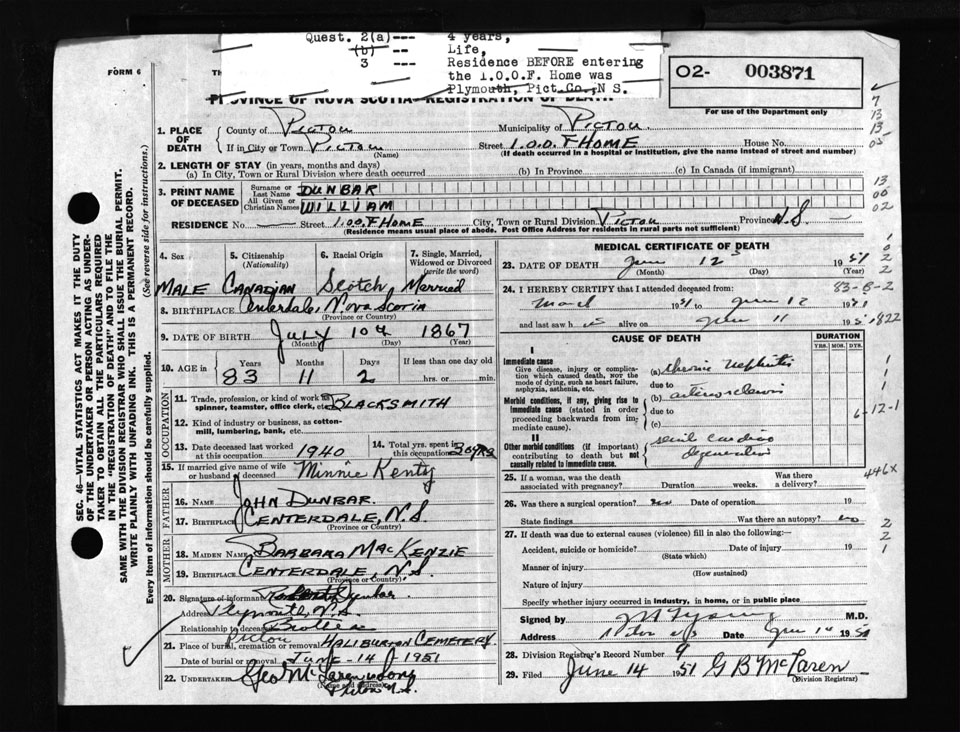 Quest. 2(a)--- 4 years,
(b)--- Life,
3 Residence BEFORE entering
the I.O.O.F. Home was
Plymouth, Pict.Co., N S.
FORM 6
O2- 003871
For use of the Department only
PROVINCE OF NOVA SCOTIA—REGISTRATION OF DEATH
1. PLACE OF DEATH
County of Pictou Municipality of Pictou.
If in City or Town Pictou (Name) Street I.O.O.F HOME House No.
(If death occurred in a hospital or institution, give the name instead of street and number)
2. LENGTH OF STAY (in years, months and days)
(a) In City, Town or Rural Division where death occurred (b) In Province (c) In Canada (if immigrant)
3. PRINT NAME OF DECEASED
Surname or Last Name DUNBAR
All Given or Christian Names WILLIAM
RESIDENCE No. — Street I.O.O.F HOME City, Town or Rural Division Pictou Province N.S.
(Residence means usual place of abode. Post Office Address for residents in rural parts not sufficient)
4. Sex 5. Citizenship (Nationality) 6. Racial Origin 7. Single, Married, Widowed or Divorced (write the word)
MALE CANADIAN Scotch Married
8. BIRTHPLACE Centerdale, Nova Scotia
(Province or Country)
9. DATE OF BIRTH July 10th 1867
(Month) (Day) (Year)
10. AGE in Years Months Days If less than one day old
83 11 2 hrs. or min.
OCCUPATION
11. Trade, profession, or kind of work as spinner, teamster, office clerk, etc. BLACKSMITH
12. Kind of industry or business, as cotton-mill, lumbering, bank, etc.
13. Date deceased last worked at this occupation 1940 14. Total yrs. spent in this occupation 30 yrs
15. If married give name of wife or husband of deceased Minnie Kenty
FATHER
16. NAME JOHN DUNBAR.
17. BIRTHPLACE CENTERDALE, N.S.
(Province or Country)
MOTHER
18. MAIDEN NAME BARBARA MACKENZIE
19. BIRTHPLACE CENTERDALE, N.S.
(Province or Country)
20. Signature of informant Dunbar
Address Plymouth, N.S.
Relationship to deceased Brother
21. Place of burial, cremation or removal Pictou HALIBURTON CEMETERY.
Date of burial or removal JUNE-14 1951
22. UNDERTAKER Geo McLaren
(Name and address) Pictou N.S.
MEDICAL CERTIFICATE OF DEATH
23. DATE OF DEATH June 12 1951
(Month) (Day) (Year)
24. I HEREBY CERTIFY that I attended deceased from:
March 1951 to June 12 1951
and last saw h alive on June 11 195
CAUSE OF DEATH DURATION
YRS. MOS. DYS.
I
Immediate cause
Give disease, injury or complication which caused death, not the mode of dying, such as heart failure, asphyxia, asthenia, etc.
(a) chronic nephritis
due to
Morbid conditions, if any, giving rise to immediate cause (stated in order proceeding backwards from immediate cause).
(b) arteriosclerosis
due to
(c)
II
Other morbid conditions (if important) contributing to death but not causally related to immediate cause.
senile cardiac degeneration
25. If a woman, was the death associated with pregnancy? Duration weeks. Was there a delivery?
26. Was there a surgical operation? no Date of operation 19
State findings Was there an autopsy? no
27. If death was due to external causes (violence) fill in also the following:—
Accident, suicide or homicide? Date of injury 19
(State which)
Manner of injury
(How sustained)
Nature of injury
Specify whether injury occurred in industry, in home, or in public place
Signed by M.D.
Address Pictou NS Date June 195
28. Division Registrar's Record Number 9
29. Filed June 14 1951 G B McLaren
(Division Registrar)
7
13
13
05
13
00
02
1
0
2
2
83-8-2
1822
1
1
1
6-12-1
446X
2
2
1
SEC. 46—VITAL STATISTICS ACT MAKES IT THE DUTY
OF THE UNDERTAKER OR PERSON ACTING AS UNDER-
TAKER TO OBTAIN ALL THE PARTICULARS REQUIRED
IN THE "REGISTRATION OF DEATH" AND TO FILE THE
SAME WITH THE DIVISION REGISTRAR WHO SHALL ISSUE THE BURIAL PERMIT.
WRITE PLAINLY WITH UNFADING INK. THIS IS A PERMANENT RECORD.
Every item of information should be carefully supplied. (See reverse side for instructions.)